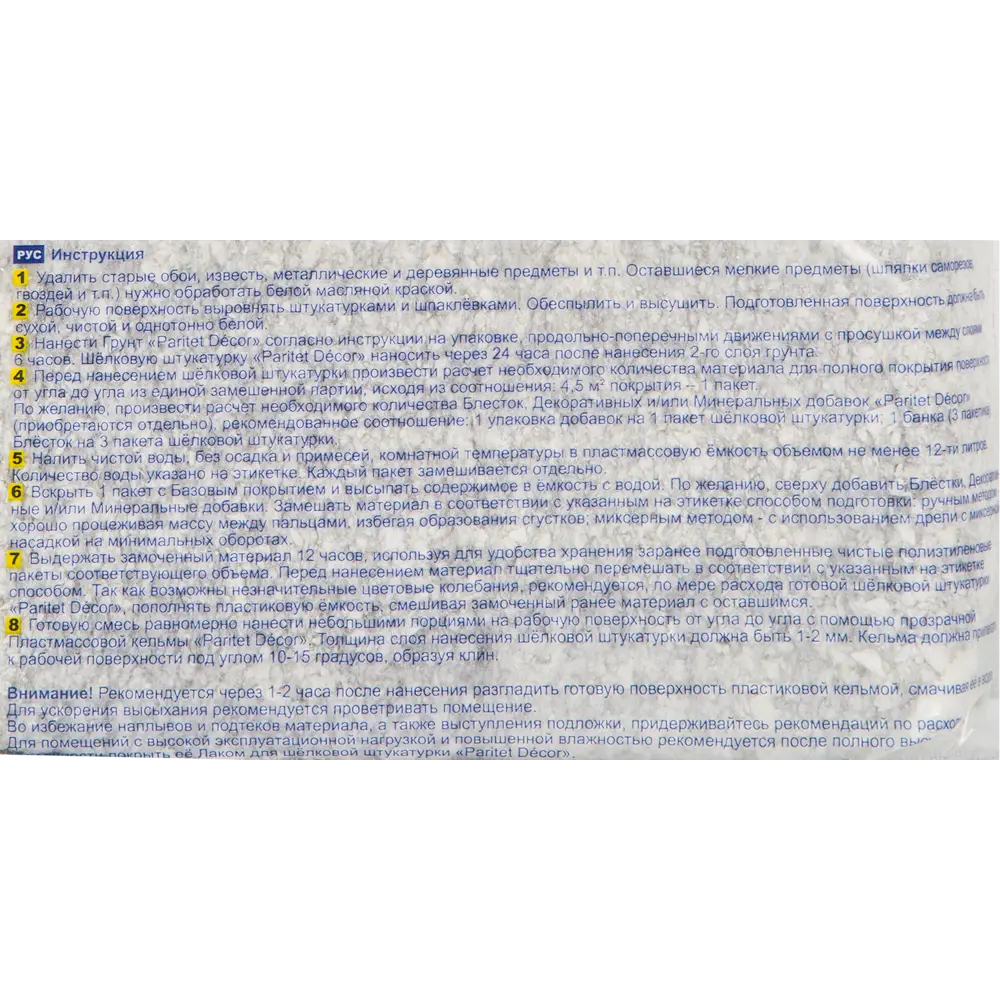 РУС Инструкция
1 Удалить старые обои, известь, металлические и деревянные предметы и т.п. Оставшиеся мелкие предметы (шляпки саморезов,
гвоздей и т.п.) нужно обработать белой масляной краской.
2 Рабочую поверхность выровнять штукатурками и шпаклёвками. Обеспылить и высушить. Подготовленная поверхность должна быть
сухой, чистой и однотонно белой.
3 Нанести Грунт «Paritet Décor» согласно инструкции на упаковке, продольно-поперечными движениями с просушкой между слоями
6 часов. Шёлковую штукатурку «Paritet Décor» наносить через 24 часа после нанесения 2-го слоя грунта.
4 Перед нанесением шёлковой штукатурки произвести расчет необходимого количества материала для полного покрытия поверхности
от угла до угла из единой замешенной партии, исходя из соотношения: 4,5 м² покрытия – 1 пакет.
По желанию, произвести расчет необходимого количества Блесток, Декоративных и/или Минеральных добавок «Paritet Décor»
(приобретаются отдельно), рекомендованное соотношение: 1 упаковка добавок на 1 пакет шёлковой штукатурки; 1 банка (3 пакетика)
Блёсток на 3 пакета шёлковой штукатурки.
5 Налить чистой воды, без осадка и примесей, комнатной температуры в пластмассовую ёмкость объемом не менее 12-ти литров.
Количество воды указано на этикетке. Каждый пакет замешивается отдельно.
6 Вскрыть 1 пакет с Базовым покрытием и высыпать содержимое в ёмкость с водой. По желанию, сверху добавить Блёстки, Декоратив
ные и/или Минеральные добавки. Замешать материал в соответствии с указанным на этикетке способом подготовки: ручным методом
хорошо процеживая массу между пальцами, избегая образования сгустков; миксерным методом - с использованием дрели с миксерн
насадкой на минимальных оборотах.
7 Выдержать замоченный материал 12 часов, используя для удобства хранения заранее подготовленные чистые полиэтиленовые
пакеты соответствующего объема. Перед нанесением материал тщательно перемешать в соответствии с указанным на этикетке
способом. Так как возможны незначительные цветовые колебания, рекомендуется, по мере расхода готовой шёлковой штукатурки
«Paritet Décor», пополнять пластиковую ёмкость, смешивая замоченный ранее материал с оставшимся.
8 Готовую смесь равномерно нанести небольшими порциями на рабочую поверхность от угла до угла с помощью прозрачной
Пластмассовой кельмы «Paritet Décor». Толщина слоя нанесения шёлковой штукатурки должна быть 1-2 мм. Кельма должна
к рабочей поверхности под углом 10-15 градусов, образуя клин.
Внимание! Рекомендуется через 1-2 часа после нанесения разгладить готовую поверхность пластиковой кельмой, смачивая её в воде.
Для ускорения высыхания рекомендуется проветривать помещение.
Во избежание наплывов и подтеков материала, а также выступления подложки, придерживайтесь рекомендаций по расход
Для помещений с высокой эксплуатационной нагрузкой и повышенной влажностью рекомендуется после полного выс
покрыть её Лаком для шёлковой штукатурки «Paritet Décor».